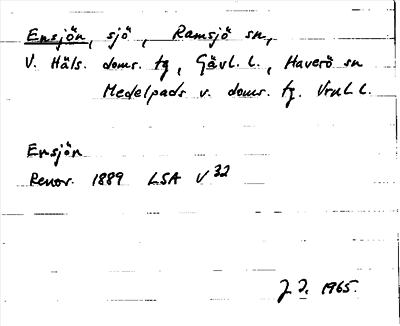 Ensjön, sjö, Ramsjö sn,
V. Häls. doms. tg, Gävl. l., Haverö sn
Medelpads v. doms. tg. Vrnl l.
Ensjön
Renov. 1889 LSA V 32
J J. 1965.